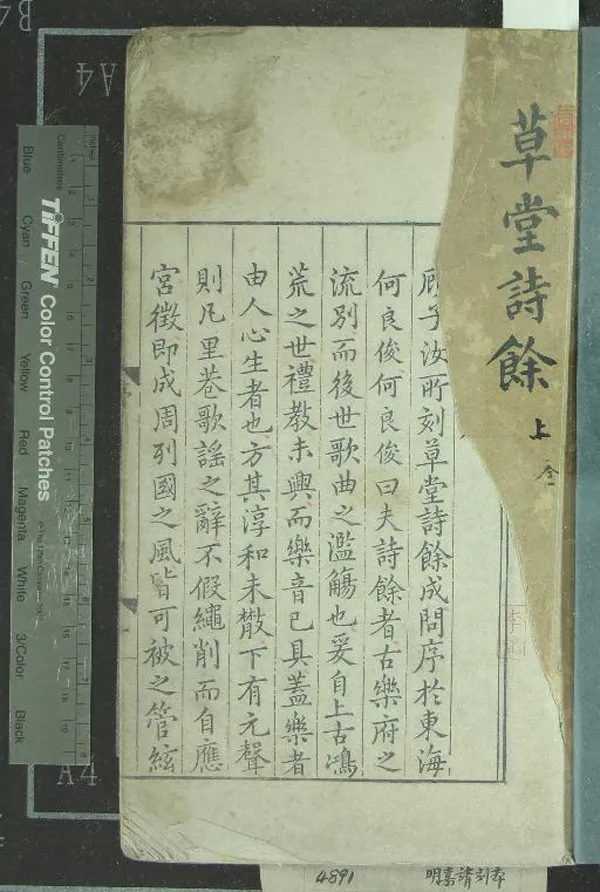 草堂詩餘
上
顧子汝所刻草堂詩餘成問序於東海
何良俊何良俊曰夫詩餘者古樂府之
流別而後世歌曲之濫觴也爰自上古鴻
荒之世禮教未興而樂音已具蓋樂者
由人心生者也方其淳和未散下有元聲
則凡里巷歌謠之辭不假繩削而自應
宮徵即成周列國之風皆可被之管絃
Inches
Centimetres
TIFFEN Color Control Patches
Blue
Cyan
Green
Yellow
Red
Magenta
White
3/Color
Black
A4
A4
B4
4891